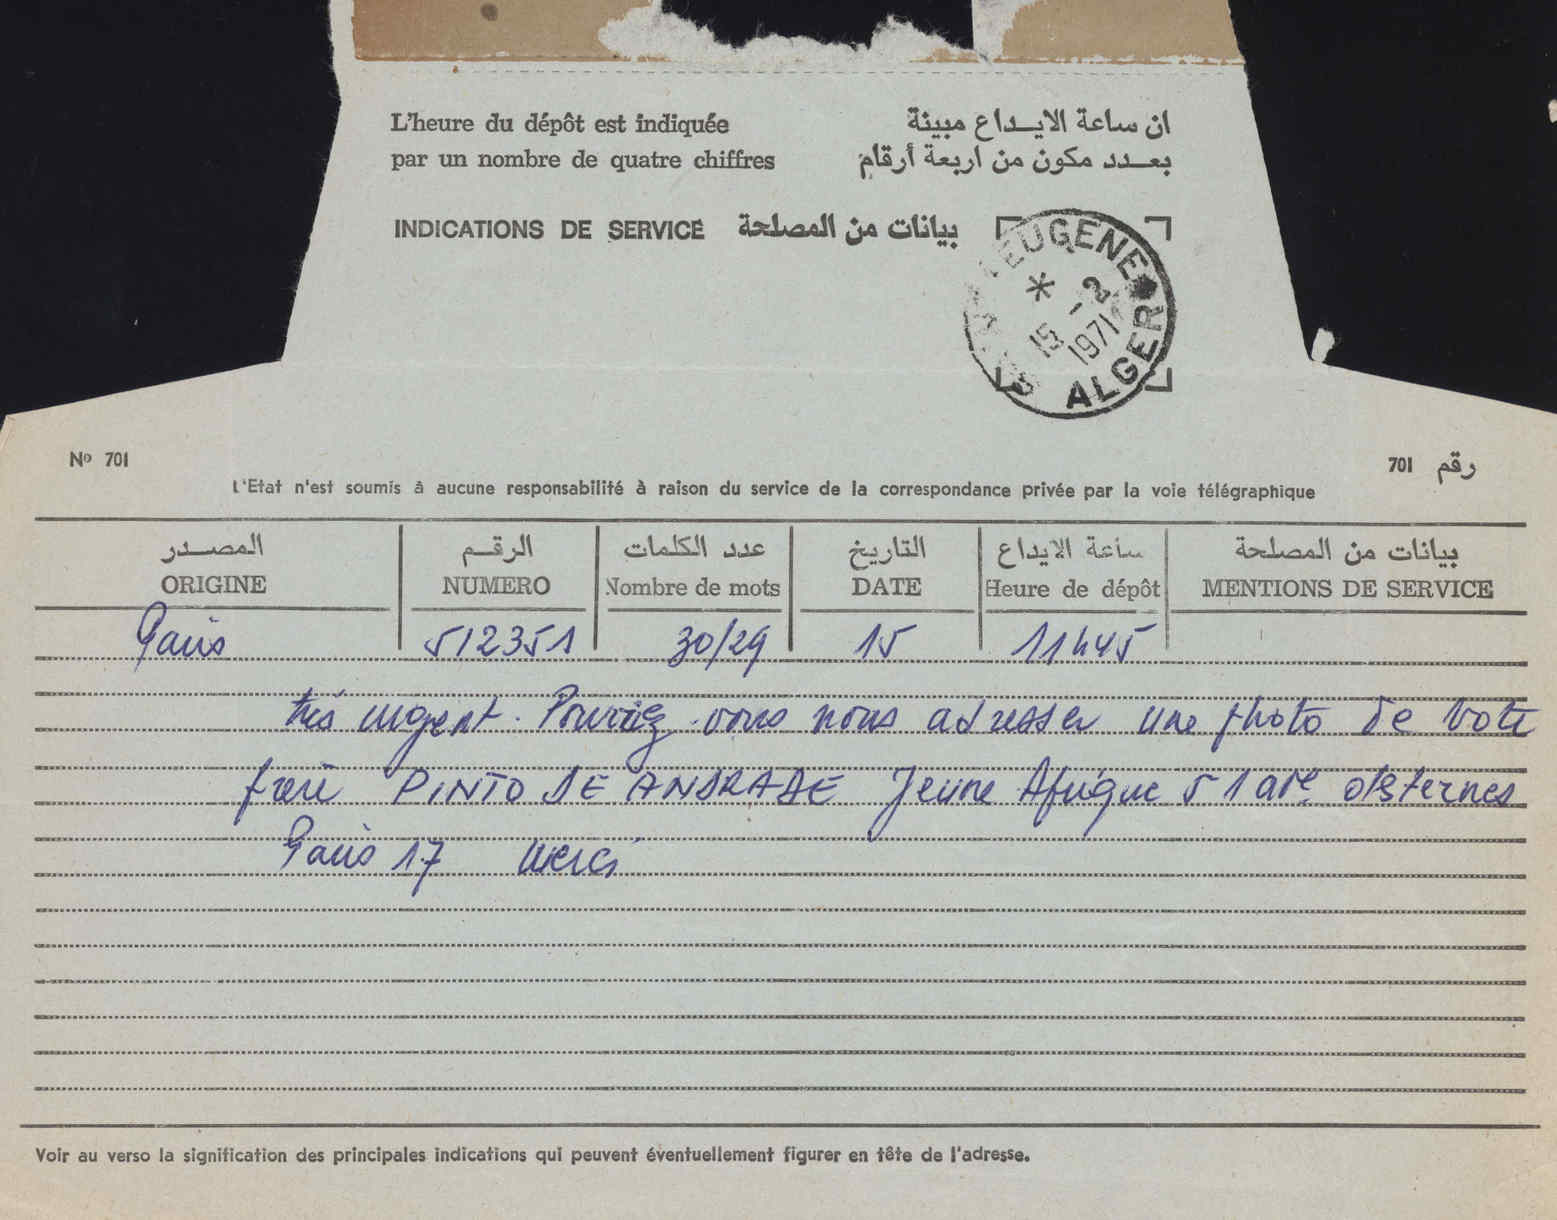 L'heure du dépôt est indiquée
par un nombre de quatre chiffres
ان ساعة الايداع مبينة
بعدد مكون من اربعة أرقام
INDICATIONS DE SERVICE بيانات من المصلحة
EUGENE
* 15 - 2
1971
ALGER
Nº 701
701 رقم
L'Etat n'est soumis à aucune responsabilité à raison du service de la correspondance privée par la voie télégraphique
المصدر الرقم عدد الكلمات التاريخ ساعة الايداع بيانات من المصلحة
ORIGINE NUMERO Nombre de mots DATE Heure de dépôt MENTIONS DE SERVICE
Paris 512351 30/29 15 11h45
très urgent. Pourriez-vous nous adresser une photo de votre
frère PINTO DE ANDRADE Jeune Afrique 51 ave des ternes
Paris 17 merci
Voir au verso la signification des principales indications qui peuvent éventuellement figurer en tête de l'adresse.